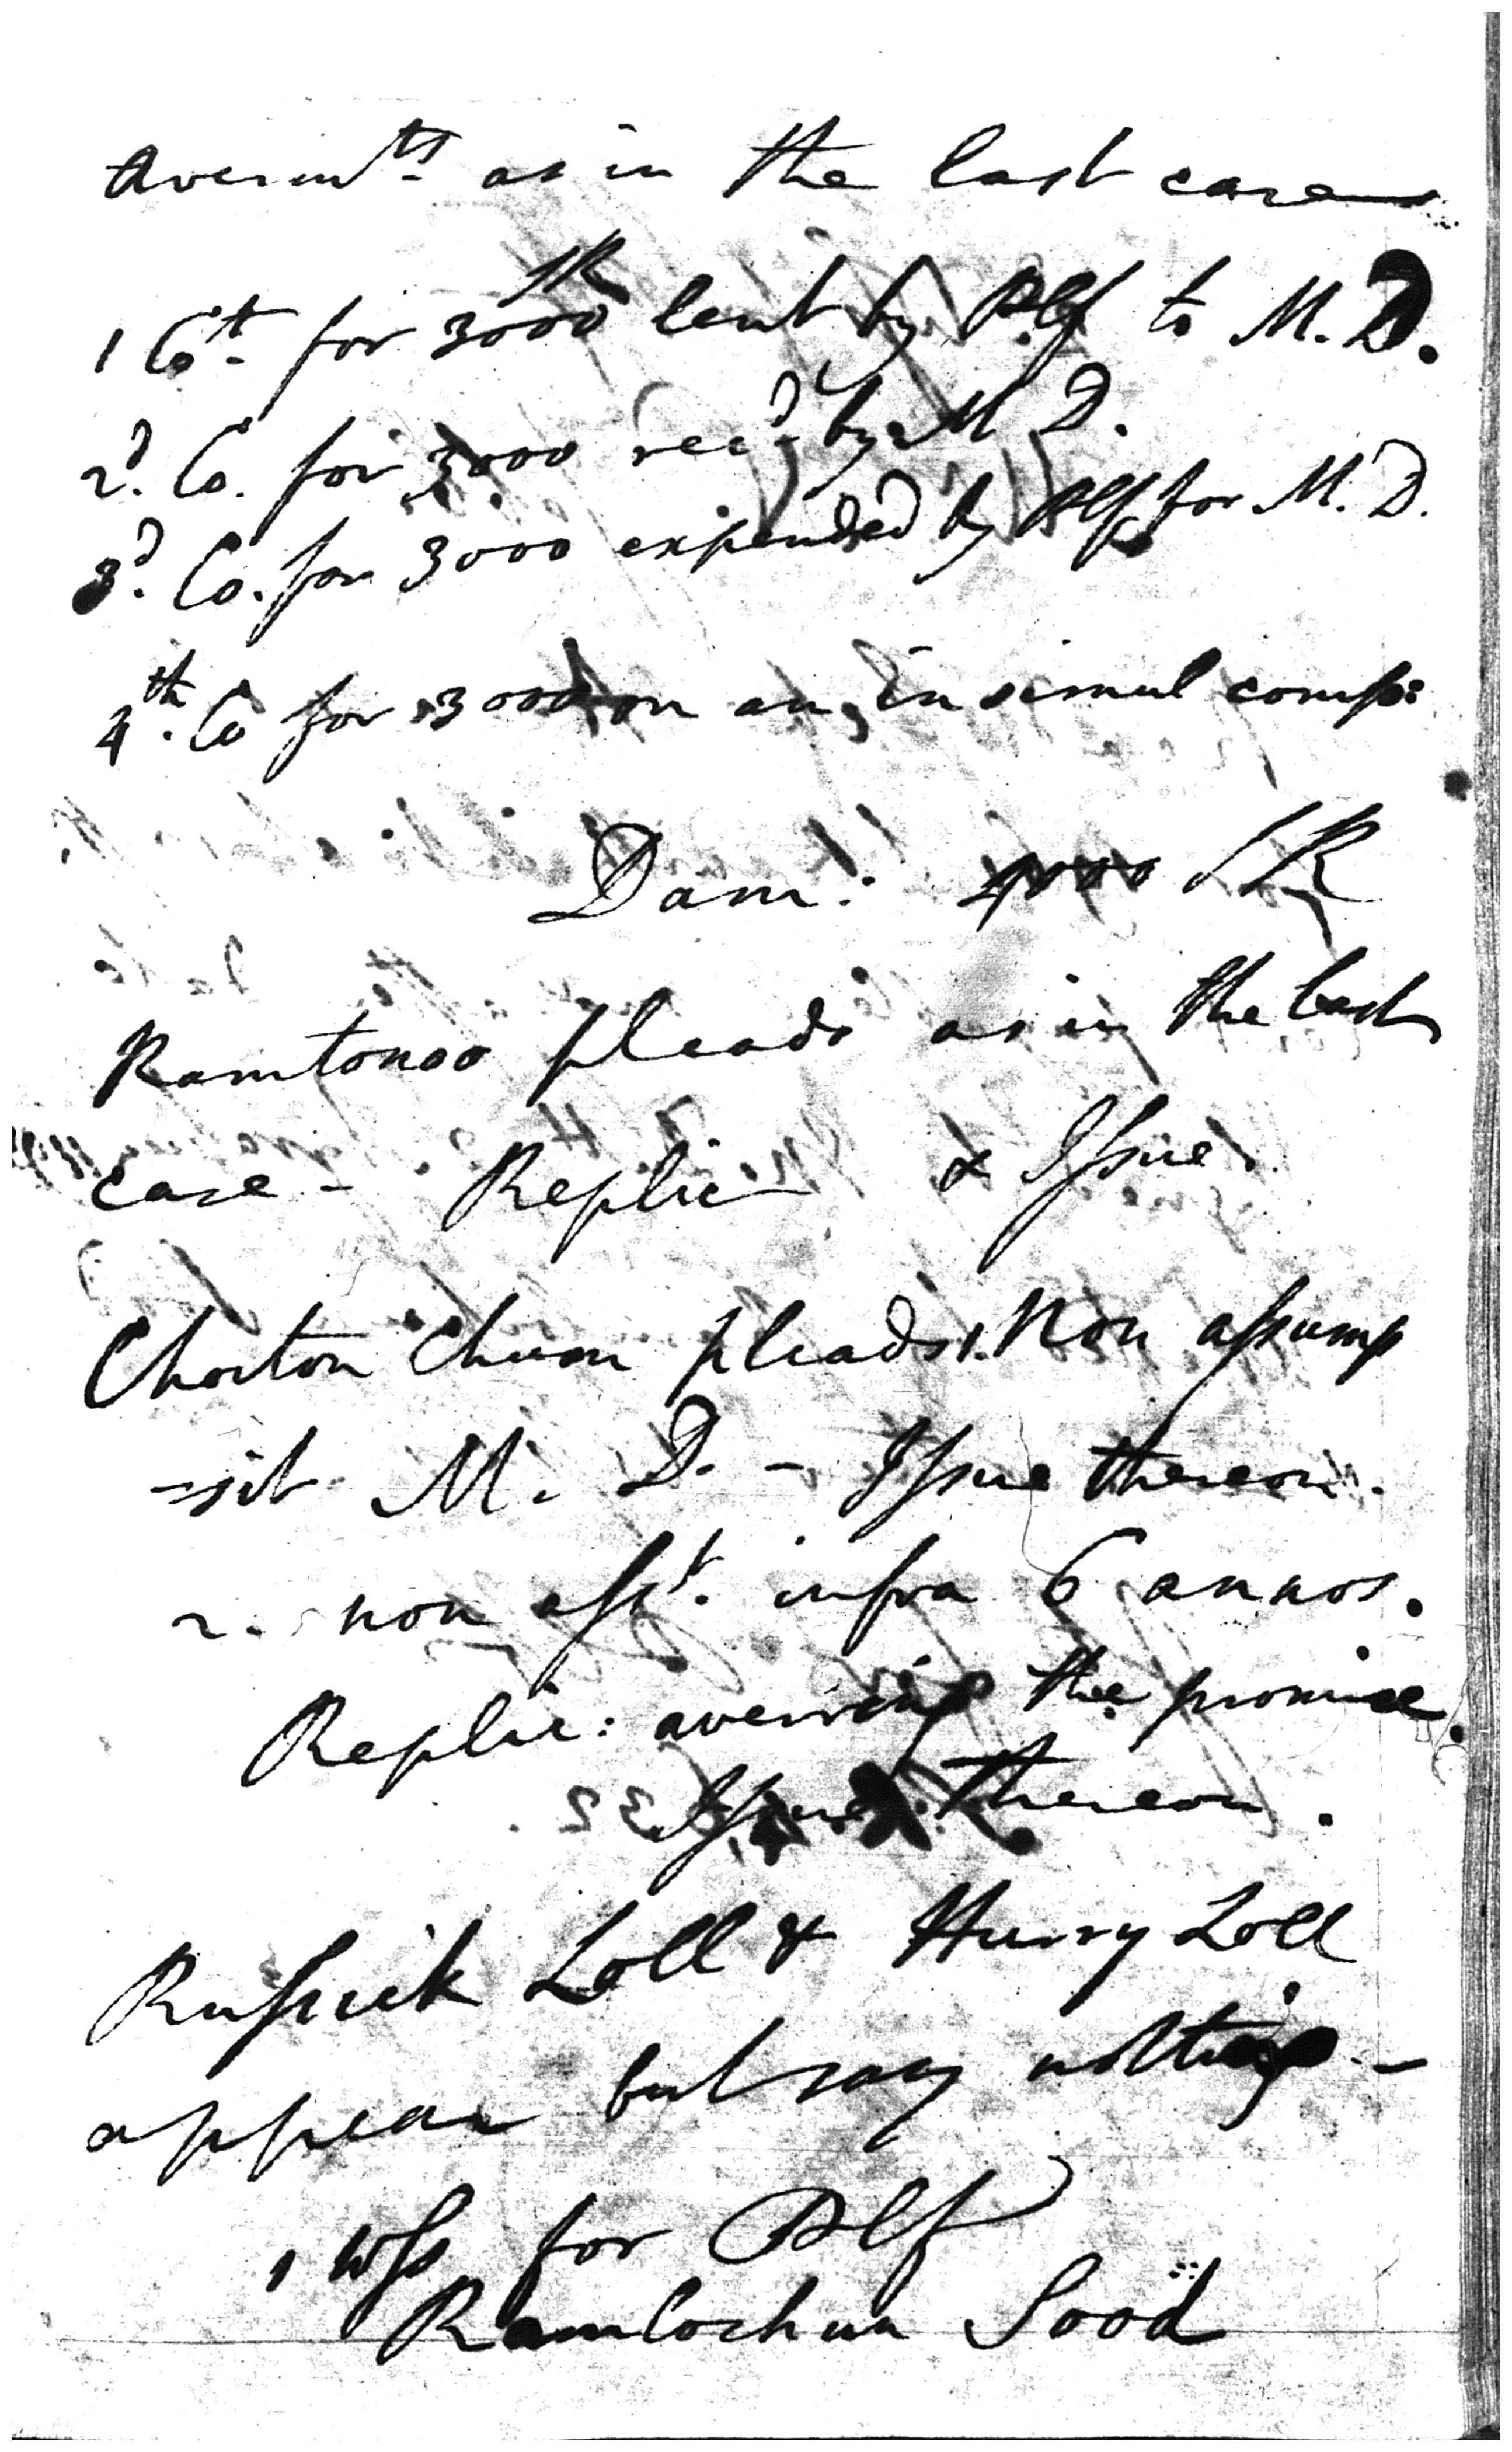 Averm.ts as in the last case
SR
1 Co.t for 3000 lent by Plf to M. D.
2.d Co. for 3000 rec.d by M D.
3.d Co. for 3000 expended by Plf for M. D.
4.th Co for 3000 on an insimul comp:
Dam: 4000 SR
Ramtonoo pleads as in the last
case - Replic & Issue.
Choiton Churn pleads 1. Non assump
-sit M. D. - Issue thereon.
2. non asst. infra 6 annos.
Replic: averring the promise.
Issue thereon.
Russick Loll & Hurry Loll
appear but say nothing -
1 Wss for Plf
Ramlochun Sood